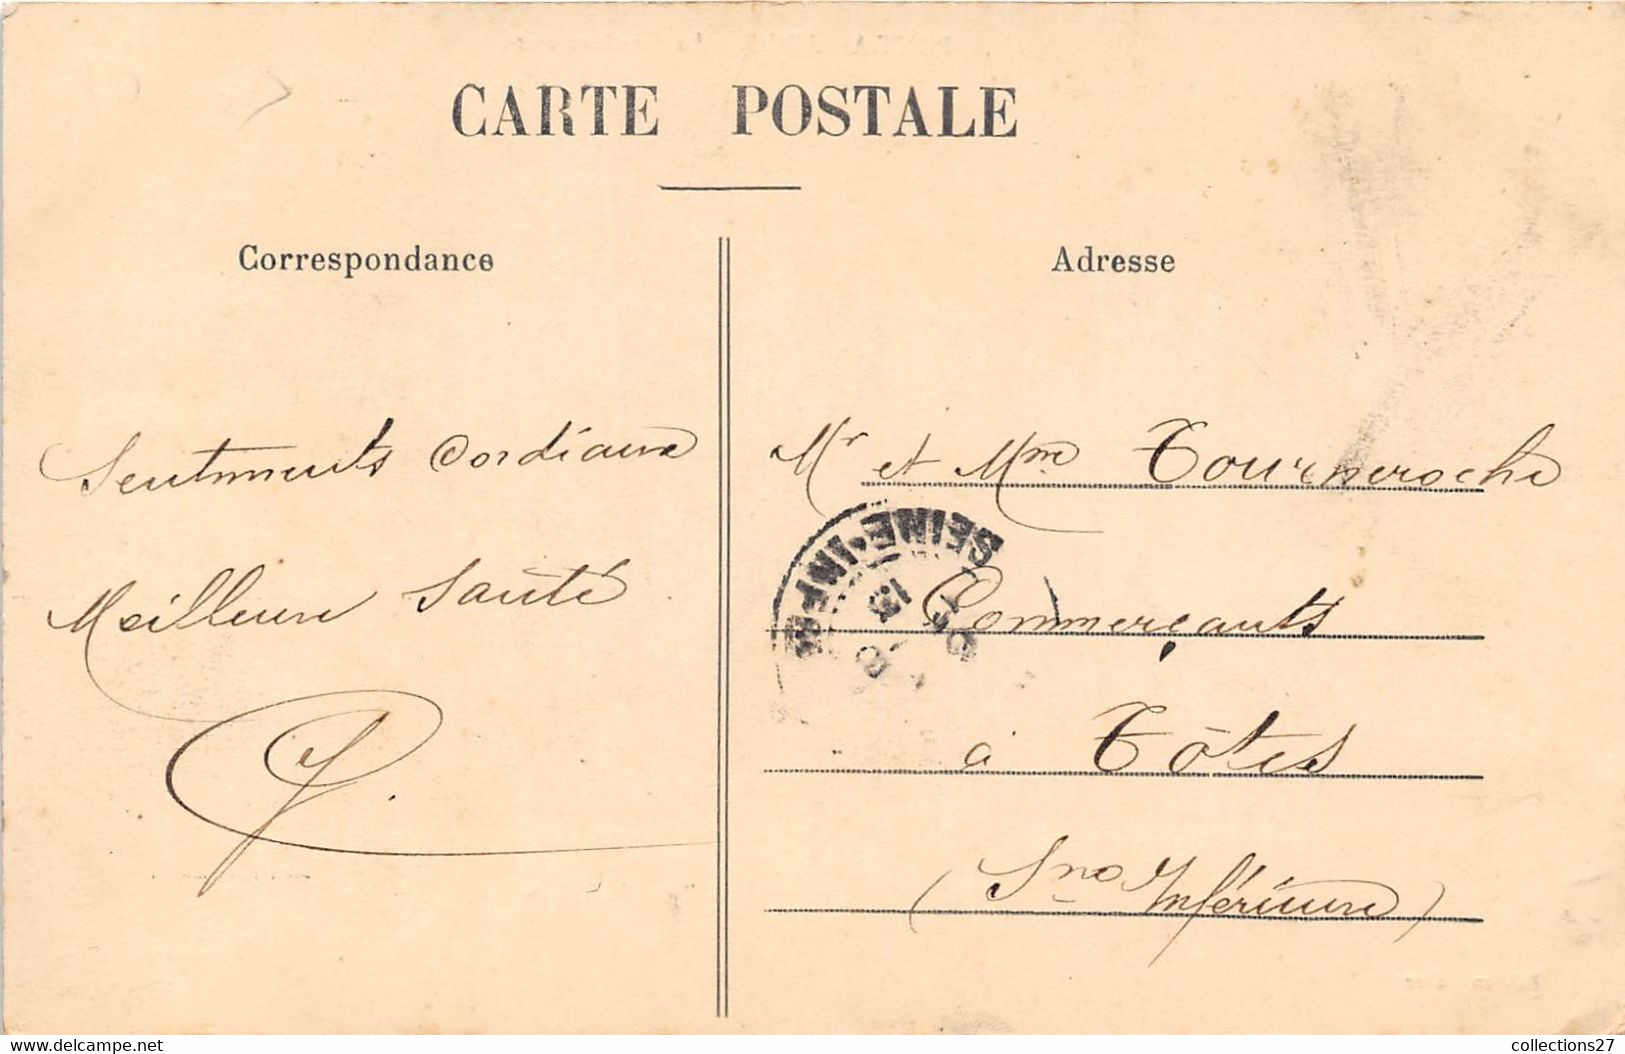 CARTE POSTALE
Correspondance
Sentiments Cordiaux
Meilleure Santé
Adresse
Mr et Mme Tourneroche
Commerçants
à Tôtes
(Sne Inférieure)
SEINE-INFRE
13
www.delcampe.net
collections27